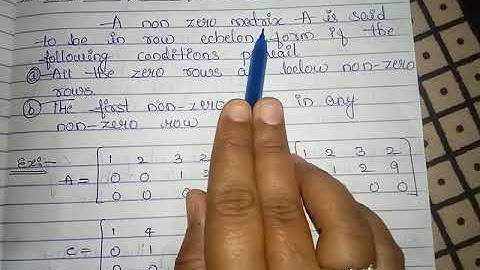 A non zero matrix A is said
to be in row echelon form if the
following conditions
(a) All the zero rows below non-zero
rows
(b) The first non-zero in any
non-zero row
Ex:-
A = 1 2 3 2 1 2 3 2
0 0 1 1 2 9
0 0 0 0 0
C = 1 4
0 1